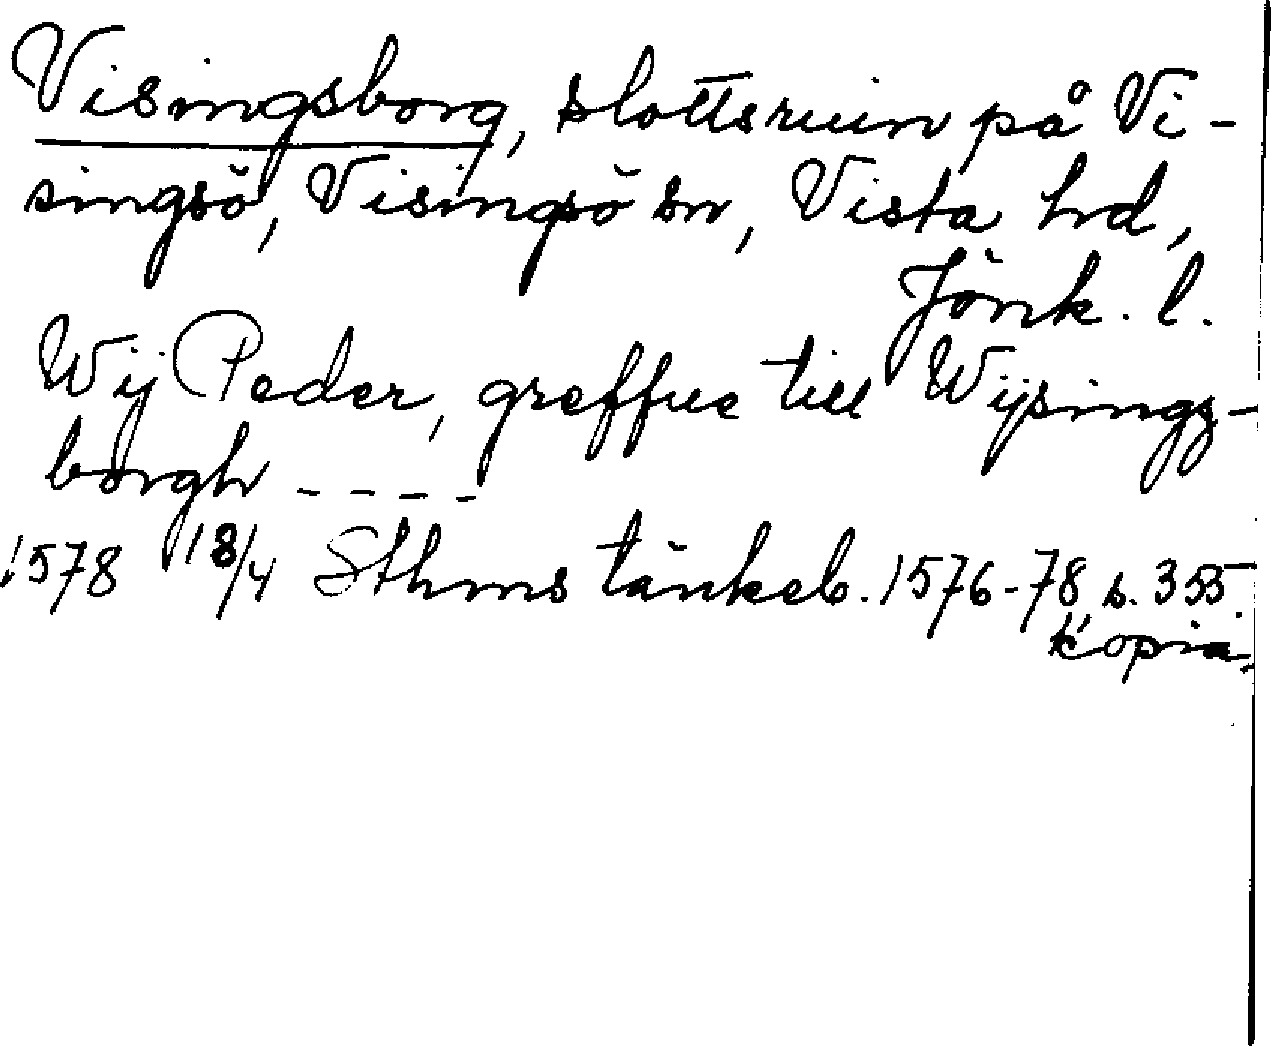 Visingsborg, slottsruin på Vi-
singsö, Visingsö sn, Vista hd,
Jönk. l.
Wij Peder, greffue till Wijsingz-
borgh - - - -
1578 18/4 Sthms tänkeb. 1576-78, s. 355.
kopia.